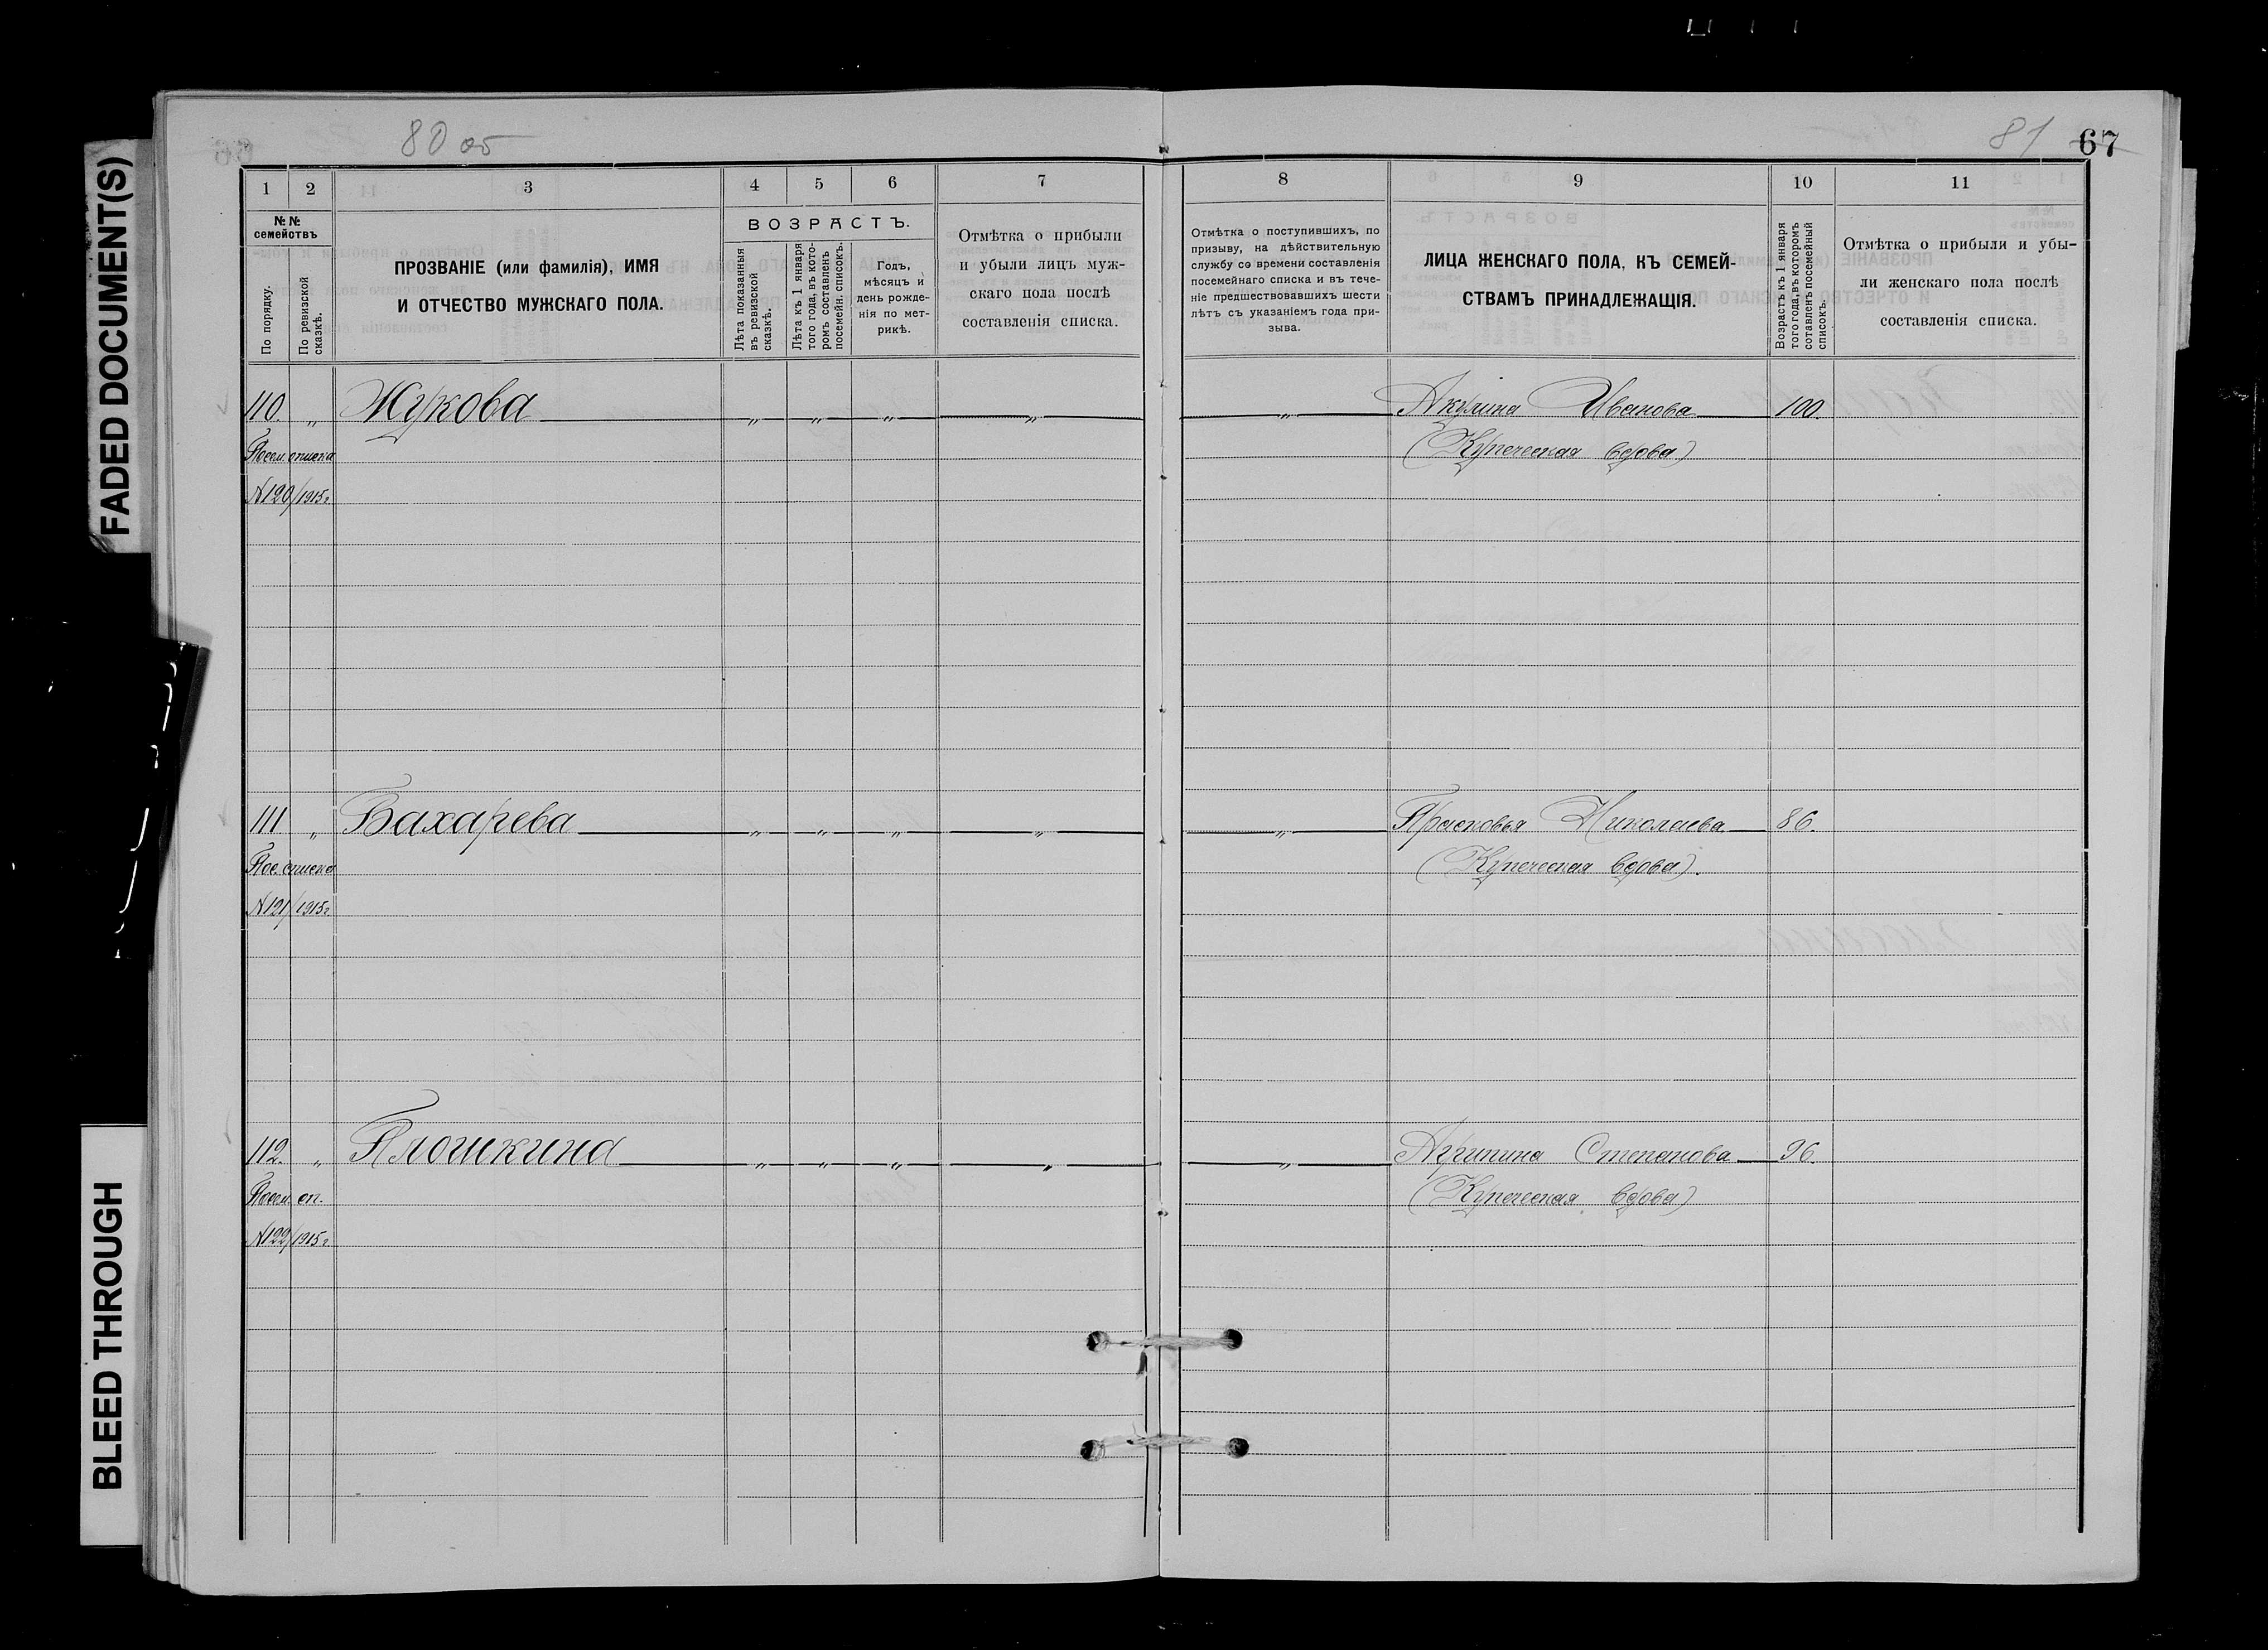 FADED DOCUMENT(S)
BLEED THROUGH
80 об
81 67
1 2 3 4 5 6 7
№ № семействъ
По порядку.
По ревизской сказкѣ.
ПРОЗВАНІЕ (или фамилія), ИМЯ
И ОТЧЕСТВО МУЖСКАГО ПОЛА.
ВОЗРАСТЪ.
Лѣта показанныя
въ ревизской
сказкѣ.
Лѣта къ 1 января
того года, въ кото-
ромъ составленъ
посемейн. списокъ.
Годъ,
мѣсяцъ и
день рожде-
нія по мет-
рикѣ.
Отмѣтка о прибыли
и убыли лицъ муж-
скаго пола послѣ
составленія списка.
8 9 10 11
Отмѣтка о поступившихъ, по
призыву, на дѣйствительную
службу со времени составленія
посемейнаго списка и въ тече-
ніе предшествовавшихъ шести
лѣтъ съ указаніемъ года при-
зыва.
ЛИЦА ЖЕНСКАГО ПОЛА, КЪ СЕМЕЙ-
СТВАМЪ ПРИНАДЛЕЖАЩІЯ.
Возрастъ къ 1 января
того года, въ которомъ
сотавленъ посемейный
списокъ.
Отмѣтка о прибыли и убы-
ли женскаго пола послѣ
составленія списка.
110. „ Жукова „ „ „ „ „ Акулина Иванова 100.
Посем. списка (Купеческая вдова)
№120/1915г
111 „ Бахарева „ „ „ „ „ Прасковья Николаева 86.
Пос. списка (Купеческая вдова).
№121/1915г
112. „ Плошкина „ „ „ „ „ Агрипина Степанова 96.
Посем. сп. (Купеческая вдова)
№122/1915г